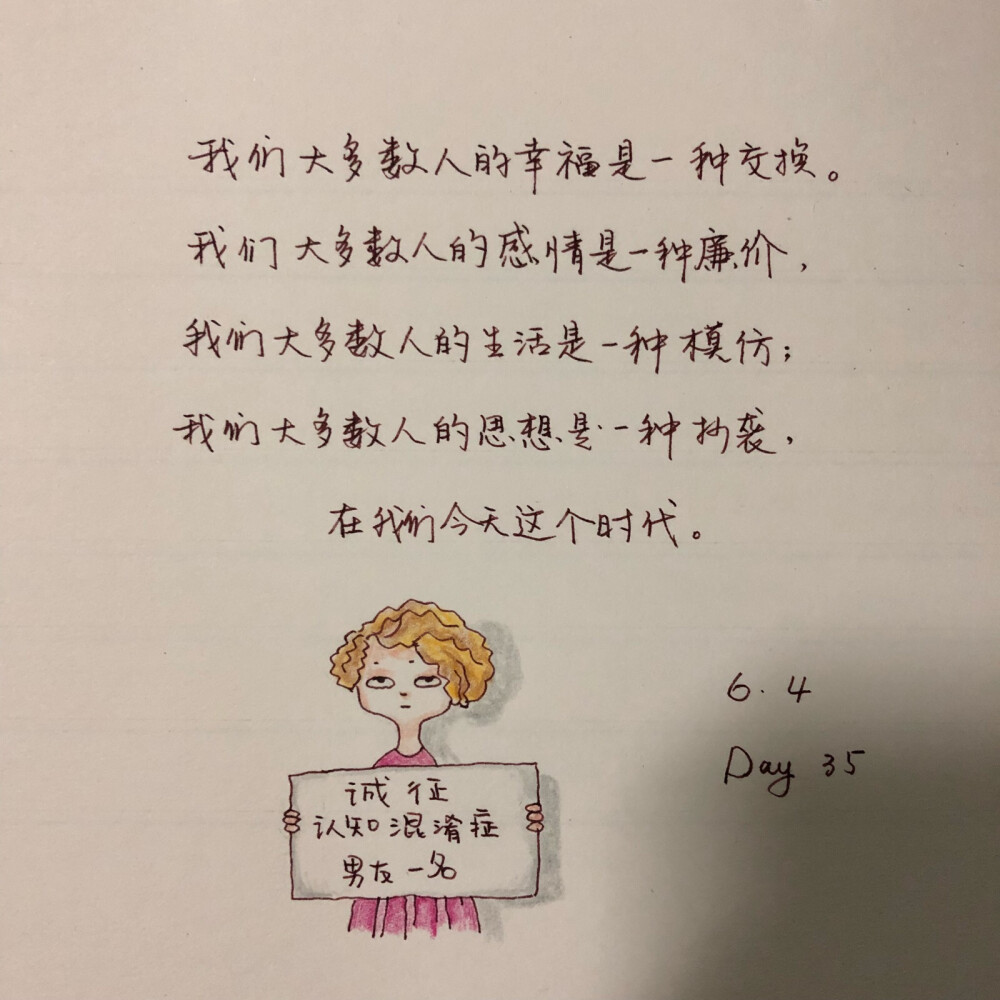 我们大多数人的幸福是一种交换。
我们大多数人的感情是一种廉价,
我们大多数人的生活是一种模仿;
我们大多数人的思想是一种抄袭,
在我们今天这个时代。
诚征
认知混淆症
男友一名
6.4
Day 35